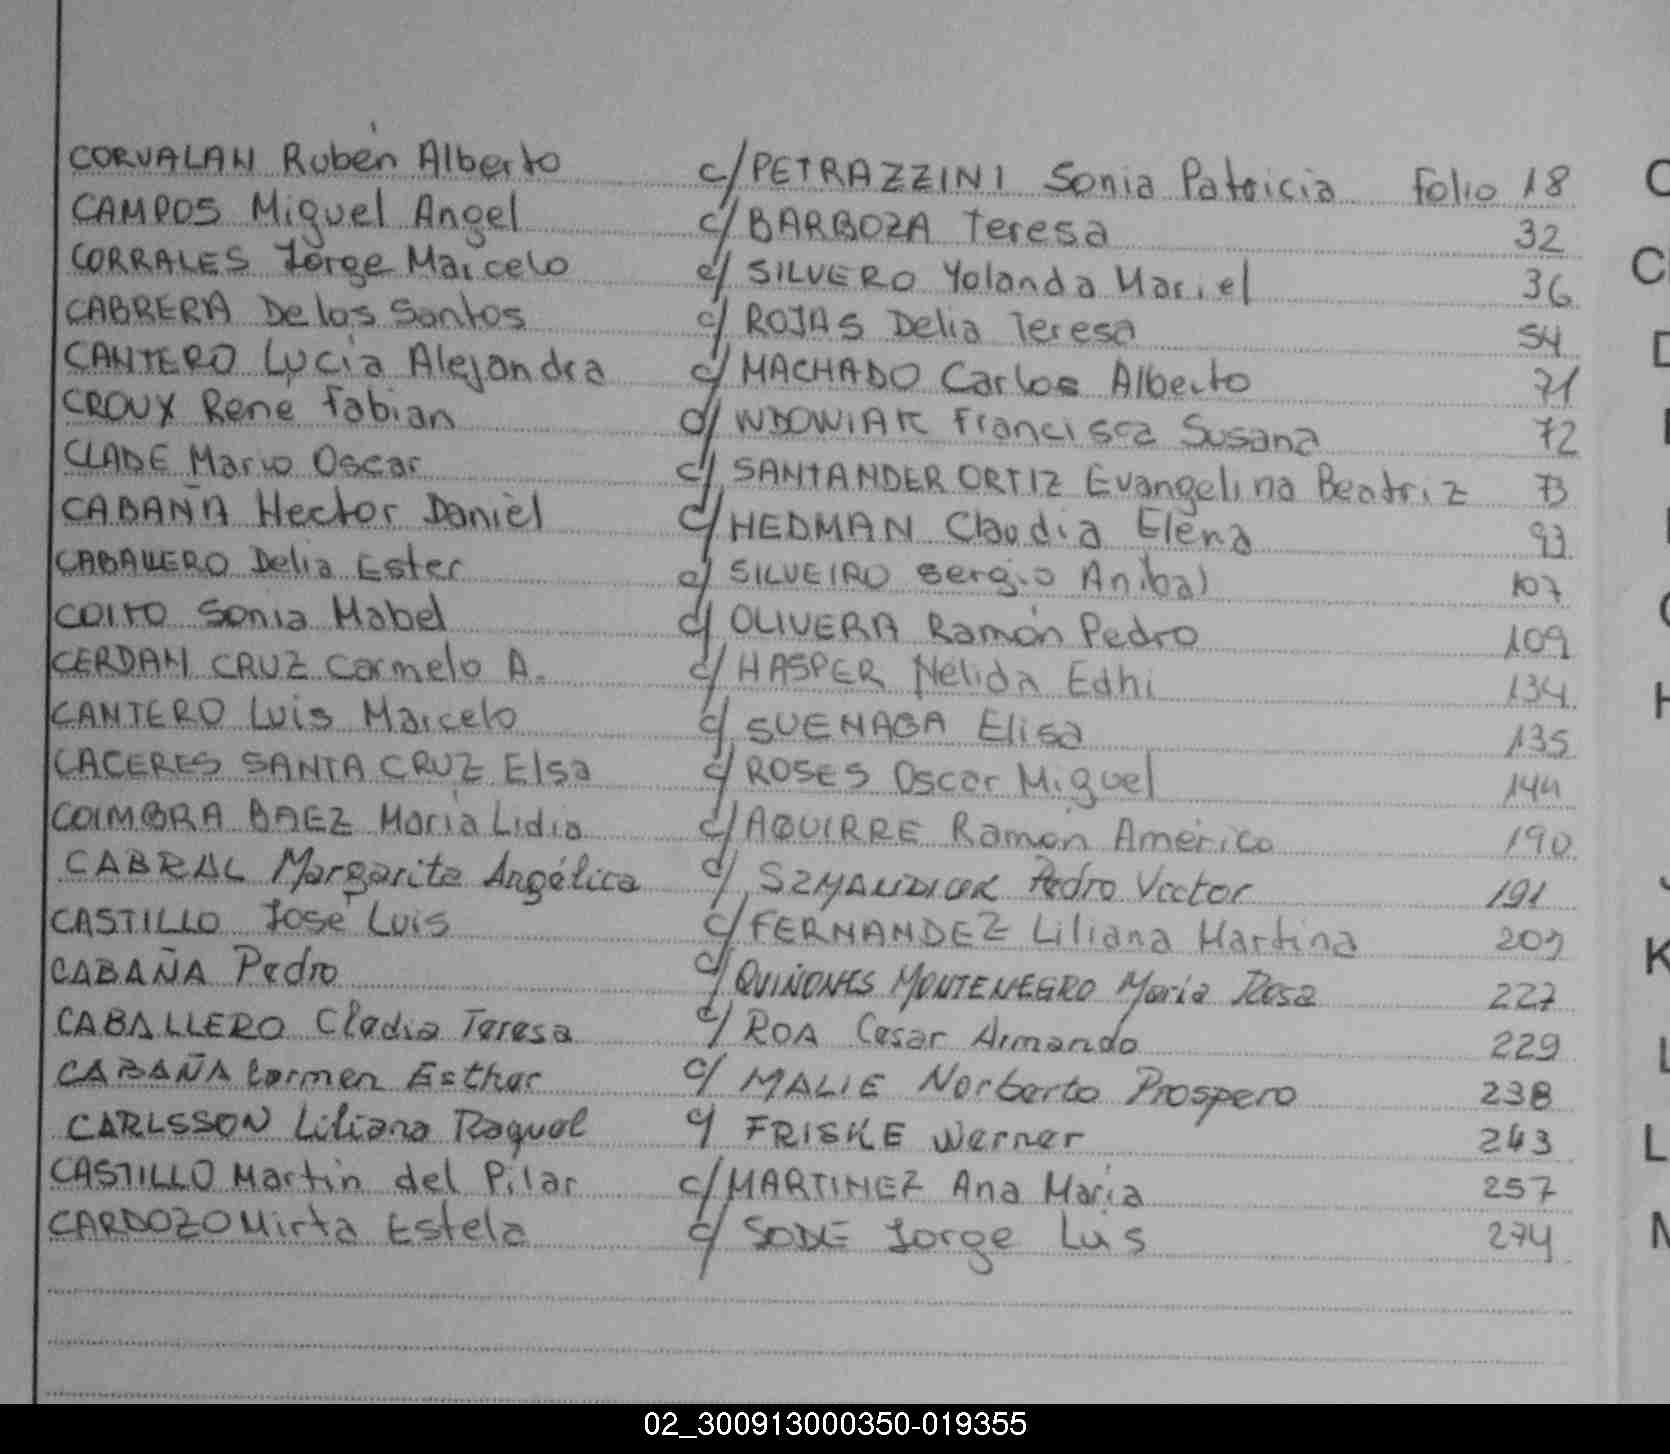 CORVALAN Rubén Alberto c/ PETRAZZINI Sonia Patricia folio 18
CAMPOS Miguel Angel c/ BARBOZA Teresa 32
CORRALES Jorge Marcelo c/ SILVERO Yolanda Mariel 36
CABRERA De los Santos c/ ROJAS Delia Teresa 54
CANTERO Lucia Alejandra c/ MACHADO Carlos Alberto 71
CROUX Rene Fabian c/ WDOWIAK Francisca Susana 72
CLADE Mario Oscar c/ SANTANDER ORTIZ Evangelina Beatriz 73
CABAÑA Hector Daniel c/ HEDMAN Claudia Elena 93
CABALLERO Delia Ester c/ SILVEIRO Sergio Anibal 107
COITO Sonia Mabel c/ OLIVERA Ramón Pedro 109
CERDAN CRUZ Carmelo A. c/ HASPER Nelida Edhi 134
CANTERO Luis Marcelo c/ SUENAGA Elisa 135
CACERES SANTA CRUZ Elsa c/ ROSES Oscar Miguel 144
COIMBRA BAEZ Maria Lidia c/ AQUIRRE Ramón Américo 190
CABRAL Margarita Angélica c/ Pedro Victor 191
CASTILLO José Luis c/ FERNANDEZ Liliana Martina 209
CABAÑA Pedro c/ QUIÑONES MONTENEGRO Maria Rosa 227
CABALLERO Cladia Teresa c/ ROA Cesar Armando 229
CABAÑA Carmen Esther c/ MALIE Norberto Prospero 238
CARLSSON Liliana Raquel c/ FRISKE Werner 243
CASTILLO Martin del Pilar c/ MARTINEZ Ana Maria 257
CARDOZO Mirta Estela c/ SODE Jorge Luis 274
02_300913000350-019355